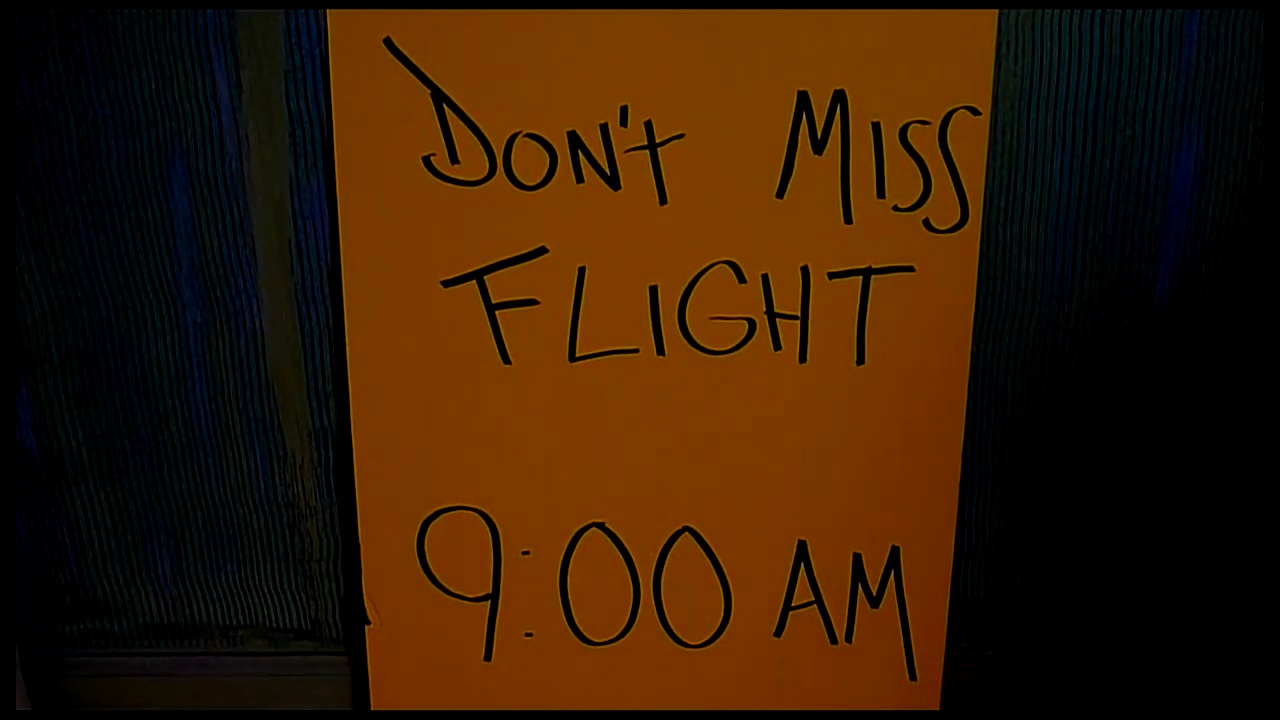 DON't MISS
FLIGHT
9:00 AM